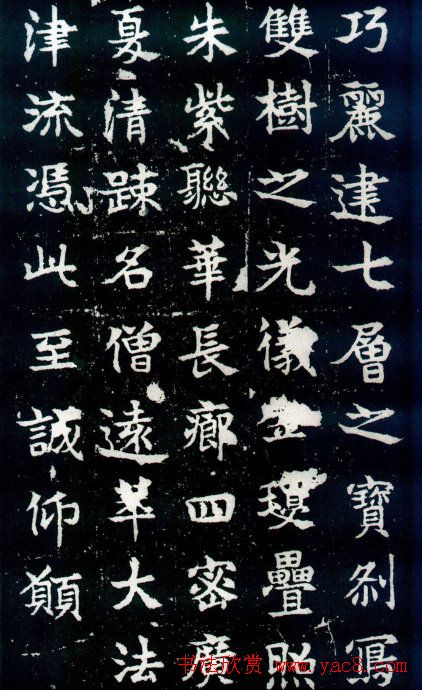 巧麗建七層之寶刹寫
雙樹之光儀金瓊疊照
朱紫聯華長廊四密廣
夏清踈名僧遠萃大法
津流憑此至誠仰願
书法欣赏 www.yac8.com